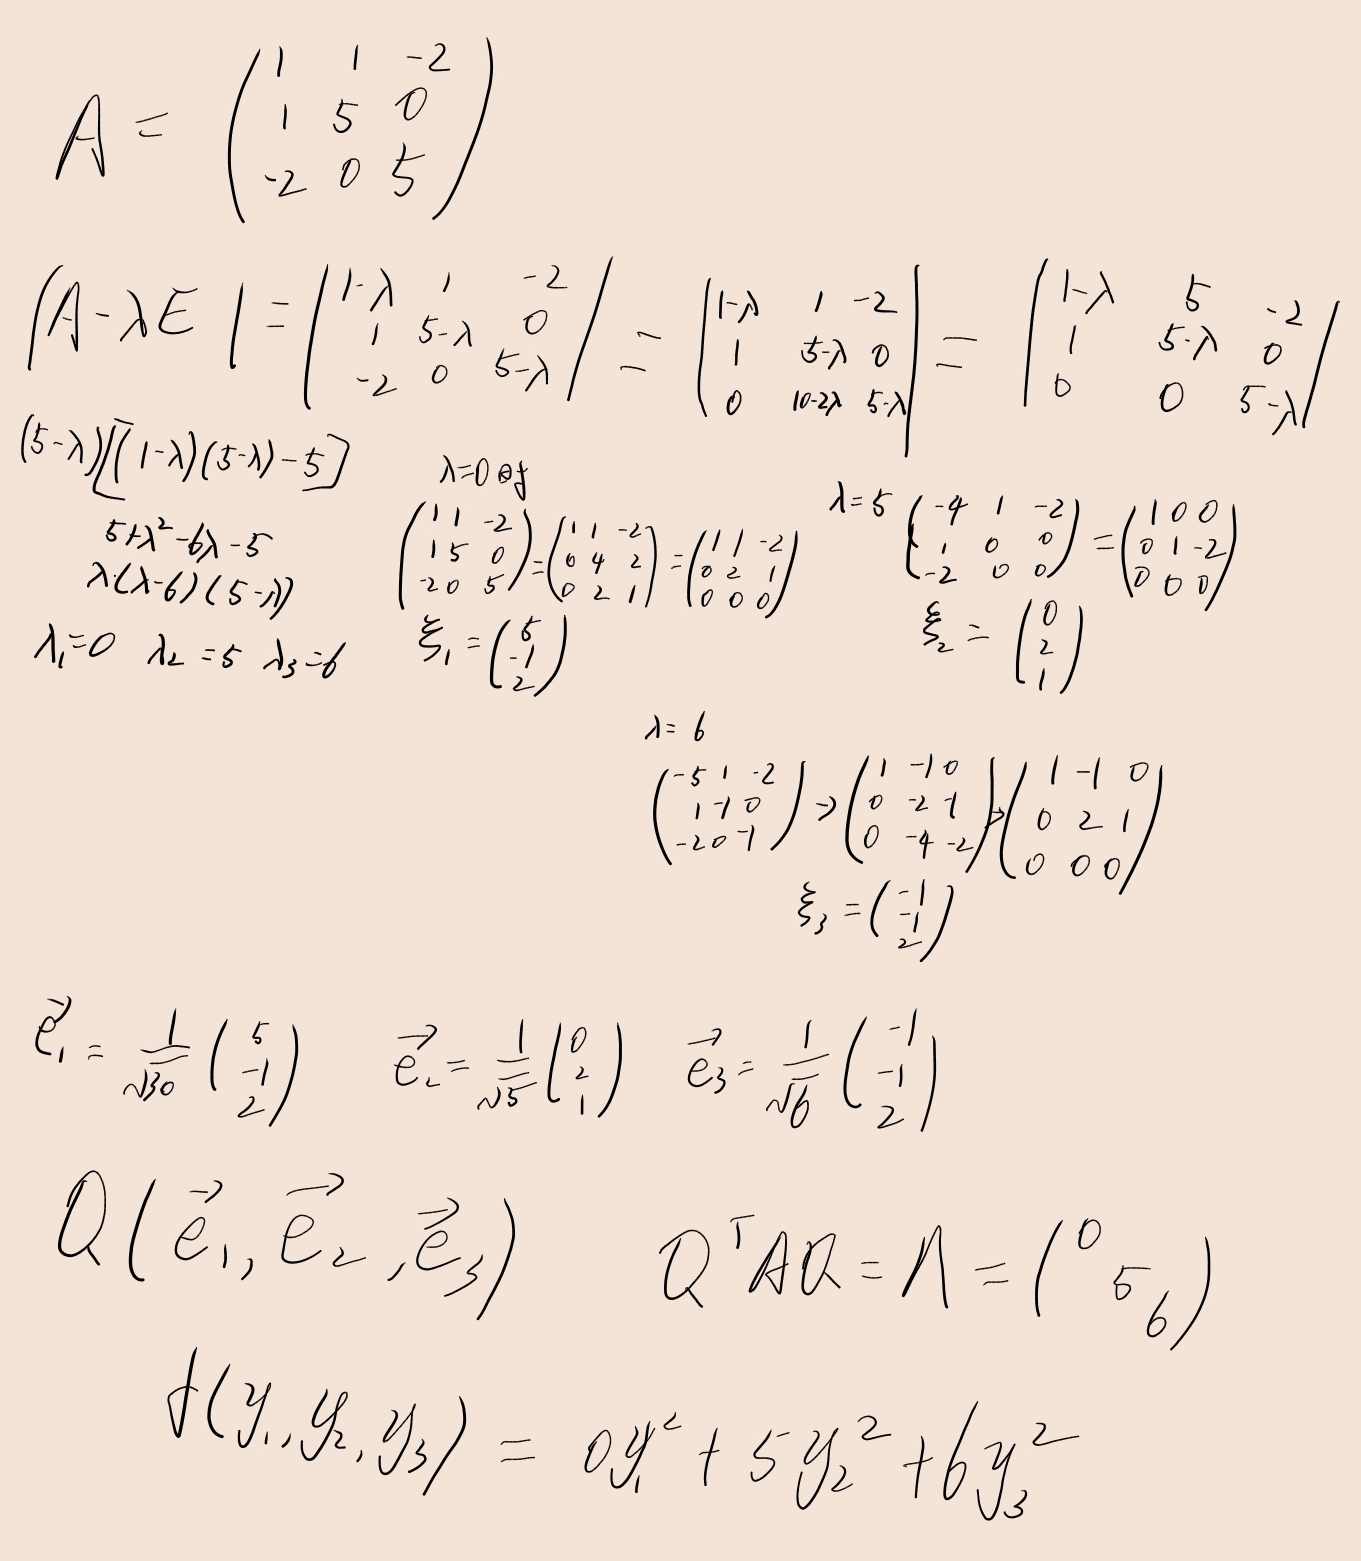 A = ( 1 1 -2
1 5 0
-2 0 5 )
|A-λE| = | 1-λ 1 -2
1 5-λ 0
-2 0 5-λ | = | 1-λ 1 -2
1 5-λ 0
0 10-2λ 5-λ | = | 1-λ 5 -2
1 5-λ 0
0 0 5-λ |
(5-λ)[(1-λ)(5-λ)-5]
5+λ²-6λ-5
λ(λ-6)(5-λ)
λ₁=0 λ₂=5 λ₃=6
λ=0时
( 1 1 -2
1 5 0
-2 0 5 ) = ( 1 1 -2
0 4 2
0 2 1 ) = ( 1 1 -2
0 2 1
0 0 0 )
ξ₁ = ( 5
-1
2 )
λ=5 ( -4 1 -2
1 0 0
-2 0 0 ) = ( 1 0 0
0 1 -2
0 0 0 )
ξ₂ = ( 0
2
1 )
λ=6
( -5 1 -2
1 -1 0
-2 0 -1 ) → ( 1 -1 0
0 -2 -1
0 -4 -2 ) → ( 1 -1 0
0 2 1
0 0 0 )
ξ₃ = ( -1
-1
2 )
e⃗₁ = 1/√30 ( 5
-1
2 ) e⃗₂ = 1/√5 ( 0
2
1 ) e⃗₃ = 1/√6 ( -1
-1
2 )
Q(e⃗₁, e⃗₂, e⃗₃) QᵀAQ = Λ = ( 0
5
6 )
f(y₁, y₂, y₃) = 0y₁² + 5y₂² + 6y₃²